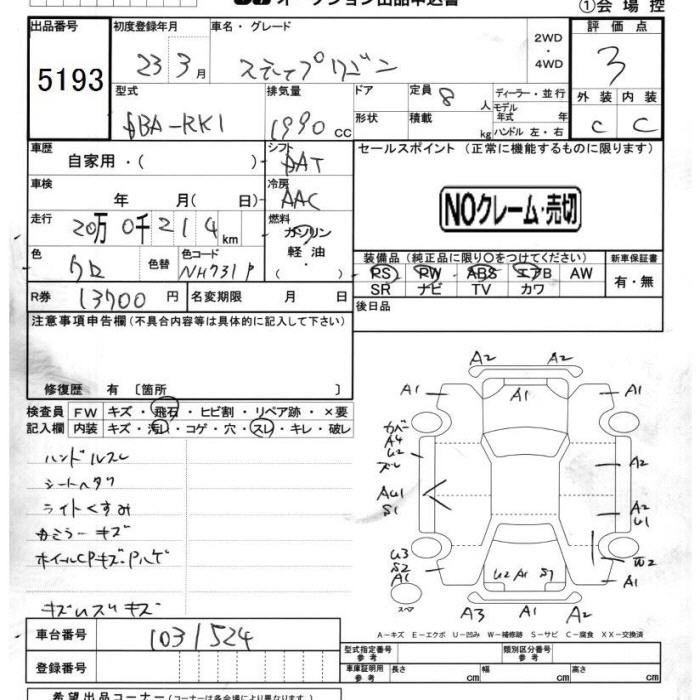 オークション出品申込書
①会場控
出品番号 初度登録年月 車名・グレード 2WD 評価点
5193 23 3月 ステップワゴン ・4WD 3
型式 排気量 ドア 定員 8人 ディーラー・並行 外装 内装
DBA-RK1 1990 cc 形状 積載 kg モデル年式 年 C C
ハンドル 左・右
車歴 自家用・( ) シフト DAT セールスポイント (正常に機能するものに限ります)
車検 年 月(日) 冷房 AAC
NOクレーム・売切
走行 20万0千214km 燃料 ガソリン
軽油・
色 クロ 色替 色コード NH731P 装備品 (純正品に限り○をつけてください) 新車保証書
PS PW ABS エアB AW 有・無
SR ナビ TV カワ
R券 13700円 名変期限 月 日 後日品
注意事項申告欄(不具合内容等は具体的に記入して下さい)
修復歴 有 〔箇所 〕
検査員 FW キズ・飛石・ヒビ割・リペア跡・×要
記入欄 内装 キズ・汚れ・コゲ・穴・スレ・キレ・破レ
ハンドルスレ
シートヘタリ
ライトくすみ
ホイールCPキズ・Pハゲ
A2 A2
A1 A1 A1
カバー
A4
U2
ズレ A2
AU1
S1 A2
U1
U3
S2
A1 W2
U2 A1 S1 A1
スペア A3 A1 A2
A-キズ E-エクボ U-凹み W-補修跡 S-サビ C-腐食 XX-交換済
車台番号 1031524
登録番号
型式指定番号 参考 類別区分番号 参考
車庫証明用 参考 長さ cm 幅 cm 高さ cm
希望出品コーナー(コーナーは各会場により異なります)